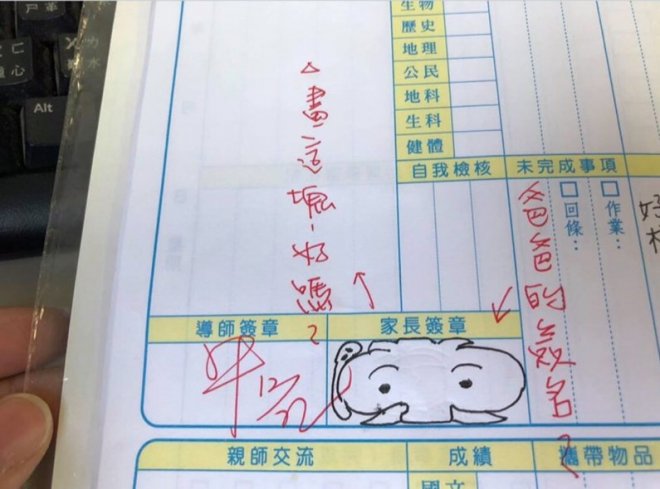 Alt
生物
歷史
地理
公民
地科
生科
健體
自我檢核
未完成事項
□作業：
□回條：
△畫這塊，好嗎？
爸爸的簽名？
導師簽章
家長簽章
12/22
親師交流
成績
攜帶物品
國文